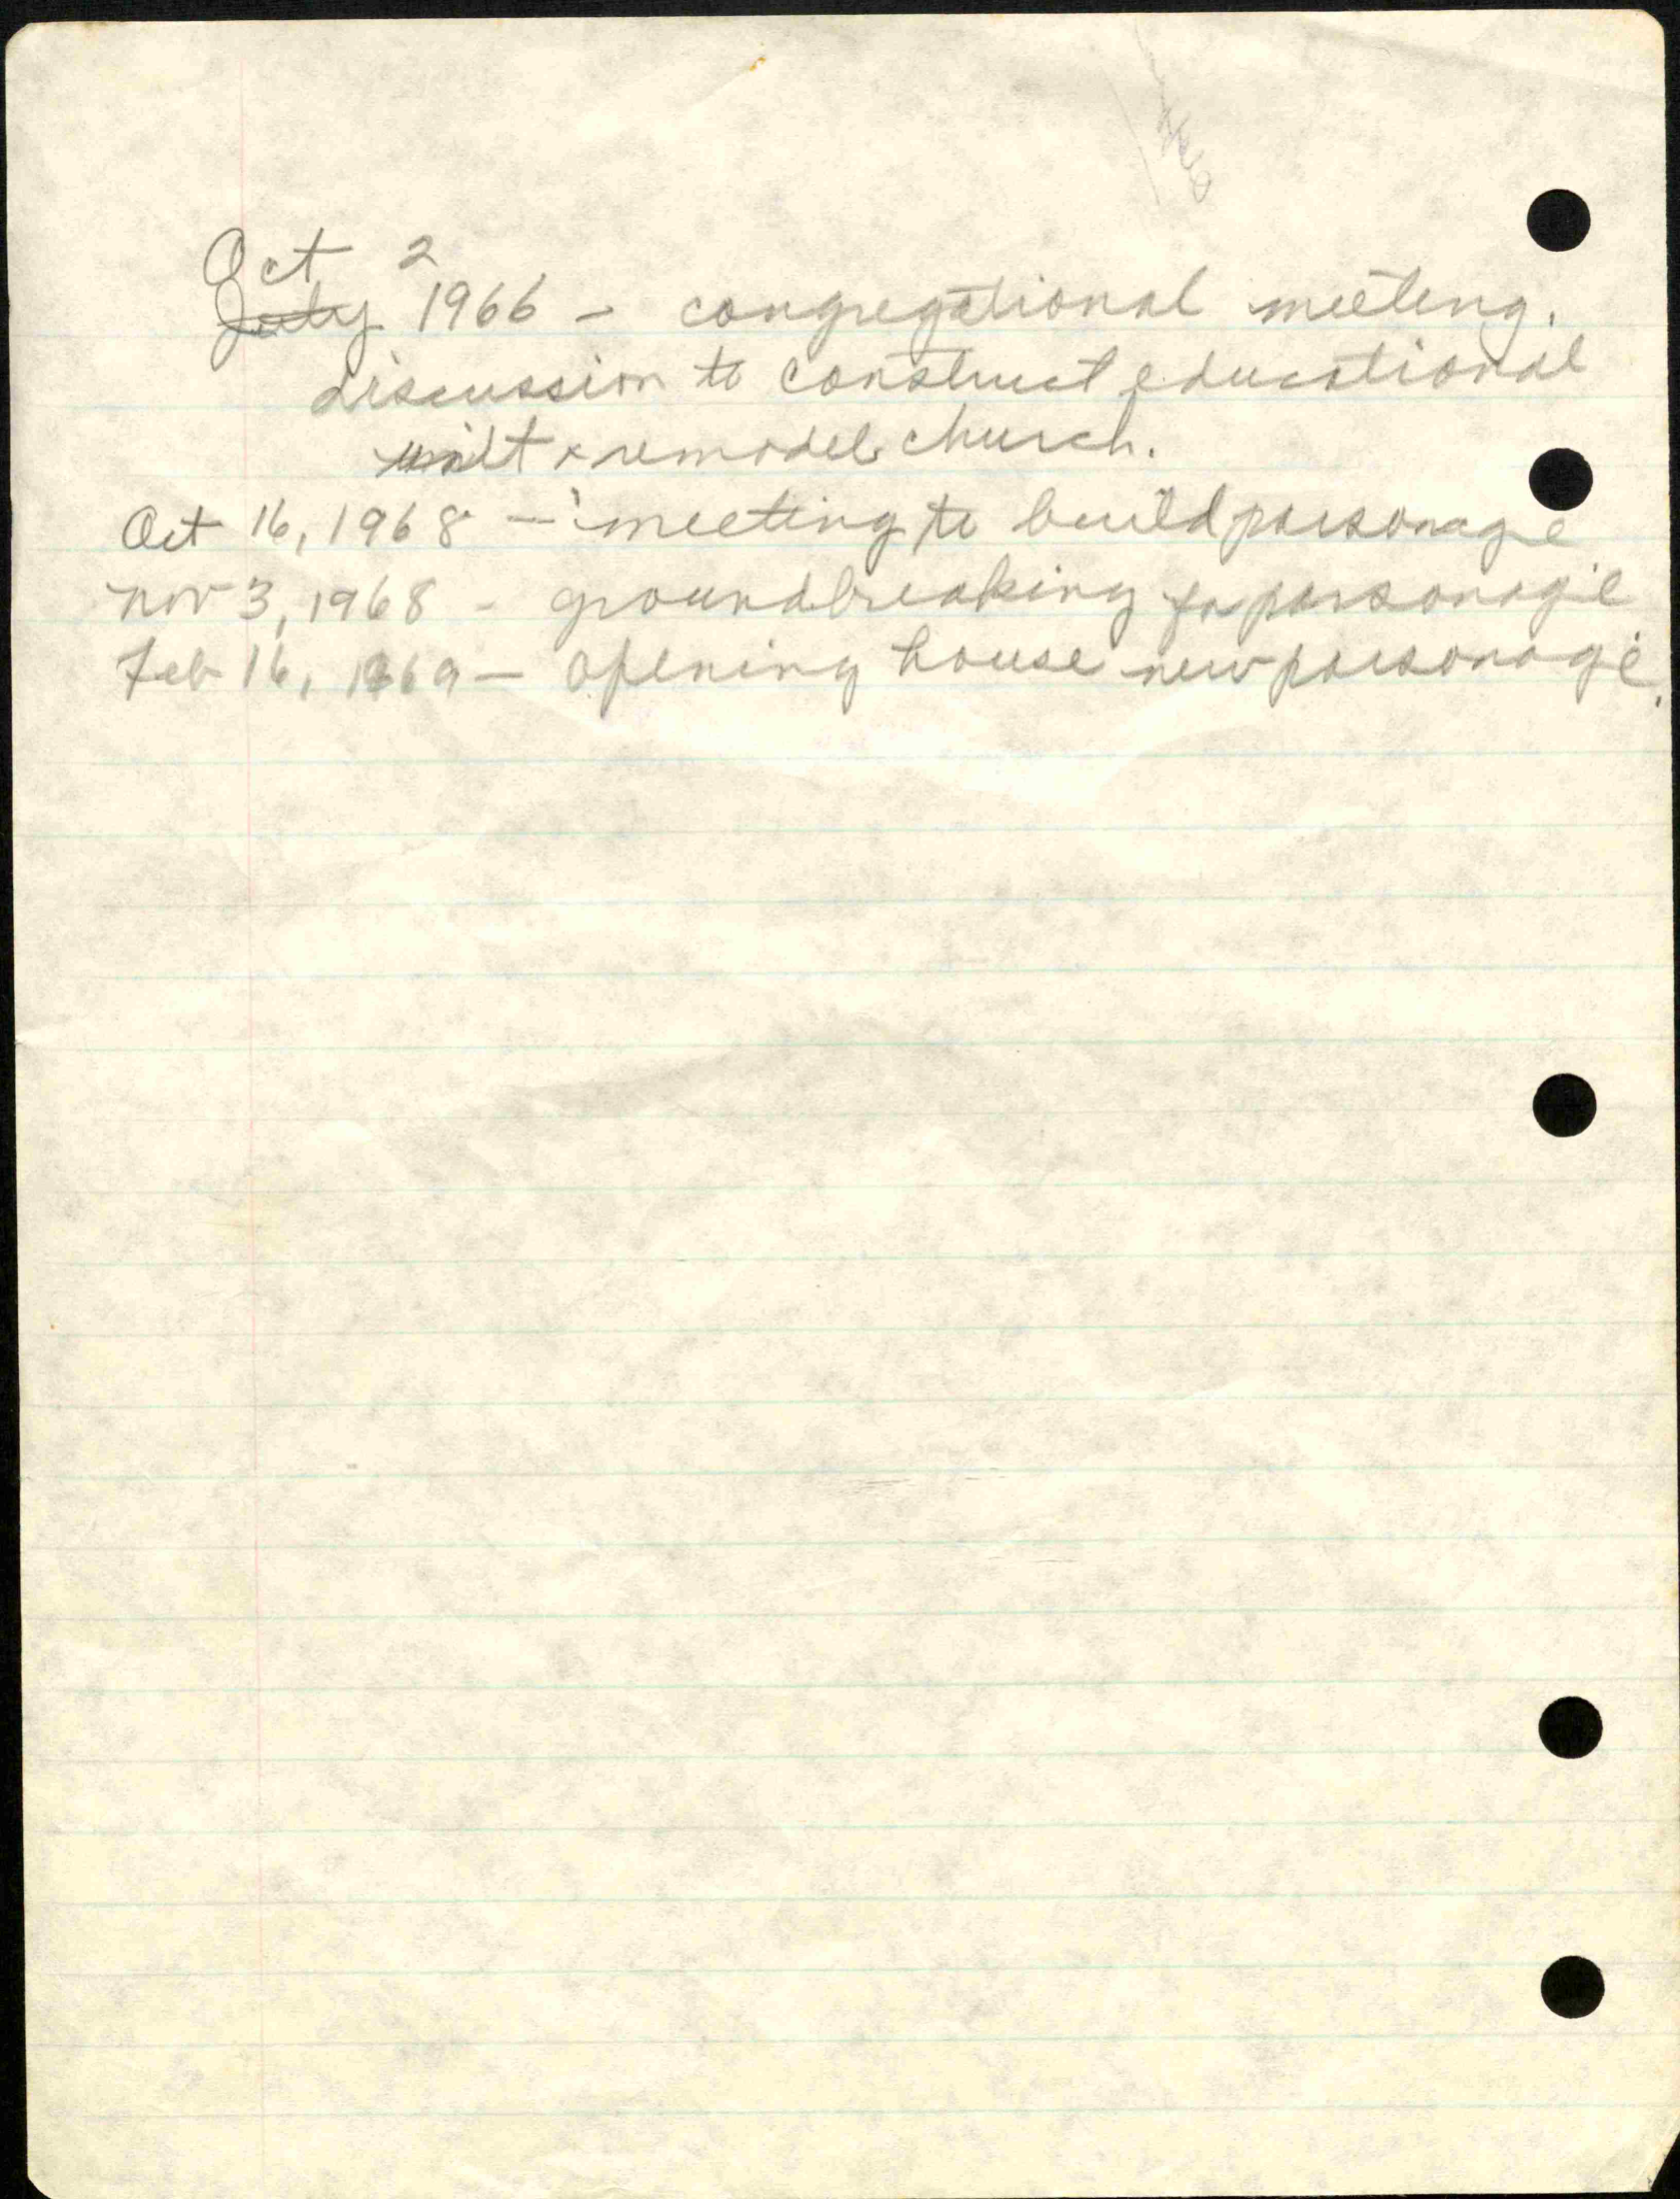 Oct 2
July 1966 - congregational meeting.
discussion to construct educational
unit & remodel church.
Oct 16, 1968 - meeting to build parsonage
Nov 3, 1968 - groundbreaking for parsonage
Feb 16, 1969 - opening house new parsonage.